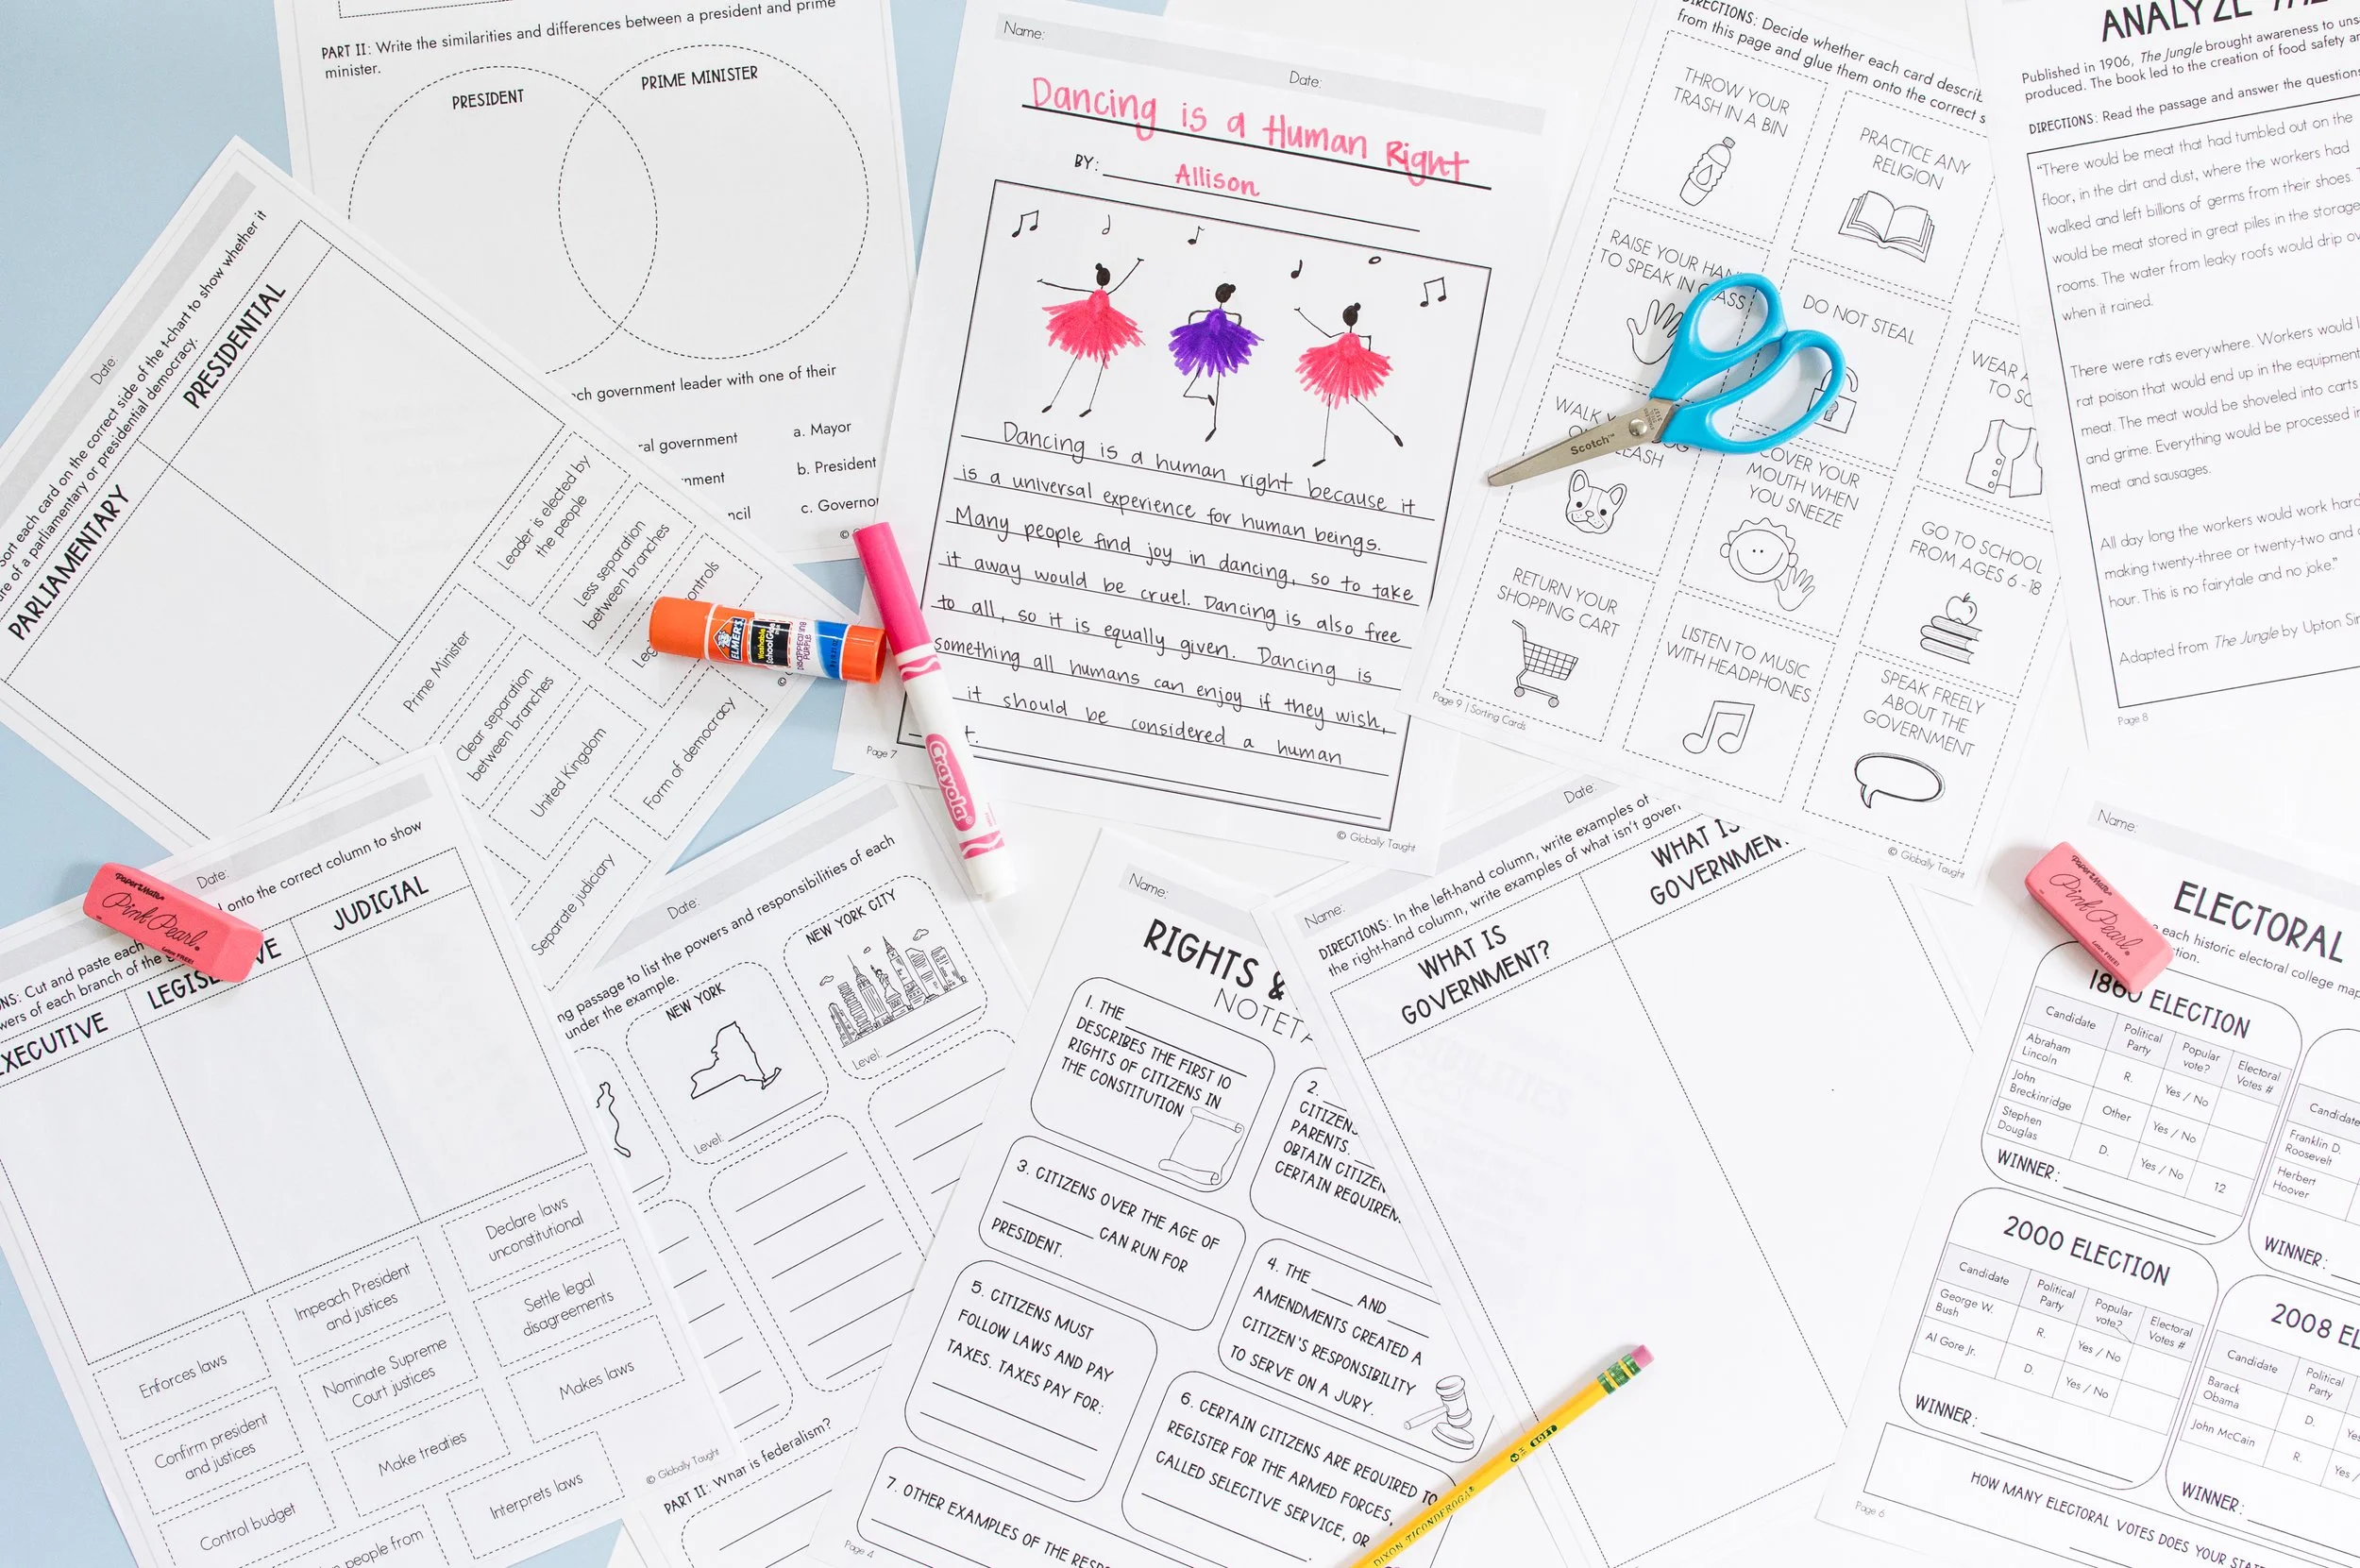 PART II: Write the similarities and differences between a president and prime
minister.
PRESIDENT
PRIME MINISTER
government leader with one of their
government
a. Mayor
b. President
c.
©
Date:
Sort each card on the correct side of the t-chart to show whether it
of a parliamentary or presidential democracy.
PARLIAMENTARY
PRESIDENTIAL
Leader is elected by
the people
Less separation
between branches
controls
Prime Minister
Clear separation
between branches
United Kingdom
Form of democracy
Separate judiciary
©
Name:
Date:
Dancing is a Human Right
BY: Allison
Dancing is a human right because it
is a universal experience for human beings.
Many people find joy in dancing, so to take
it away would be cruel. Dancing is also free
to all, so it is equally given. Dancing is
something all humans can enjoy if they wish,
it should be considered a human
Page 7
© Globally Taught
DIRECTIONS: Decide whether each card
from this page and glue them onto the correct
THROW YOUR
TRASH IN A BIN
PRACTICE ANY
RELIGION
RAISE YOUR
TO SPEAK IN
DO NOT STEAL
WEAR
TO
WALK
COVER YOUR
MOUTH WHEN
YOU SNEEZE
GO TO SCHOOL
FROM AGES 6 - 18
RETURN YOUR
SHOPPING CART
LISTEN TO MUSIC
WITH HEADPHONES
SPEAK FREELY
ABOUT THE
GOVERNMENT
Page 9 | Sorting Cards
© Globally Taught
Scotch™
ANALYZE
Published in 1906, The Jungle brought awareness to
produced. The book led to the creation of food safety
DIRECTIONS: Read the passage and answer the
"There would be meat that had tumbled out on the
floor, in the dirt and dust, where the workers had
walked and left billions of germs from their shoes.
would be meat stored in great piles in the storage
rooms. The water from leaky roofs would drip
when it rained.
There were rats everywhere. Workers would
rat poison that would end up in the equipment
meat. The meat would be shoveled into carts
and grime. Everything would be processed
meat and sausages.
All day long the workers would work hard
making twenty-three or twenty-two and
hour. This is no fairytale and no joke."
Adapted from The Jungle by Upton
Page 8
ELMER'S
Washable
School Glue
DISAPPEARING
PURPLE
Crayola®
Paper Mate
Pink Pearl
Date:
Cut and paste each
onto the correct column to show
of each branch of the
EXECUTIVE
JUDICIAL
Declare laws
unconstitutional
Impeach President
and justices
Settle legal
disagreements
Enforces laws
Nominate Supreme
Court justices
Makes laws
Confirm president
and justices
Make treaties
Interprets laws
Control budget
people from
© Globally Taught
Date:
passage to list the powers and responsibilities of each
under the example.
NEW YORK
NEW YORK CITY
Level:
Level:
PART II: What is federalism?
Name:
RIGHTS &
1. THE
DESCRIBES THE FIRST 10
RIGHTS OF CITIZENS IN
THE CONSTITUTION
2.
PARENTS.
OBTAIN
CERTAIN
3. CITIZENS OVER THE AGE OF
CAN RUN FOR
PRESIDENT.
4. THE
AND
AMENDMENTS CREATED A
CITIZEN'S RESPONSIBILITY
TO SERVE ON A JURY.
5. CITIZENS MUST
FOLLOW LAWS AND PAY
TAXES. TAXES PAY FOR:
6. CERTAIN CITIZENS ARE REQUIRED TO
REGISTER FOR THE ARMED FORCES,
CALLED SELECTIVE SERVICE, OR
7. OTHER EXAMPLES OF THE
Page 4
Name:
Date:
DIRECTIONS: In the left-hand column, write examples of
the right-hand column, write examples of what isn't
WHAT IS
GOVERNMENT?
WHAT
DIXON TICONDEROGA®
SOFT
Name:
Paper Mate
Pink Pearl
ELECTORAL
each historic electoral college
1860 ELECTION
Candidate
Political
Party
Popular
vote?
Electoral
Votes #
Abraham
Lincoln
R.
Yes / No
John
Breckinridge
Other
Yes / No
Stephen
Douglas
D.
Yes / No
12
WINNER:
Candidate
Franklin D.
Roosevelt
Herbert
Hoover
WINNER:
2000 ELECTION
Candidate
Political
Party
Popular
vote?
Electoral
Votes #
George W.
Bush
R.
Yes / No
Al Gore Jr.
D.
Yes / No
WINNER:
2008
Candidate
Political
Party
Barack
Obama
D.
John McCain
R.
WINNER:
HOW MANY ELECTORAL VOTES DOES YOUR
Page 6